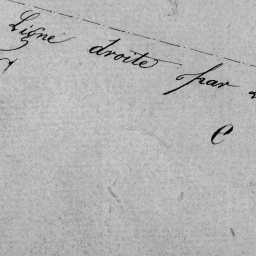 Ligne droite par
C